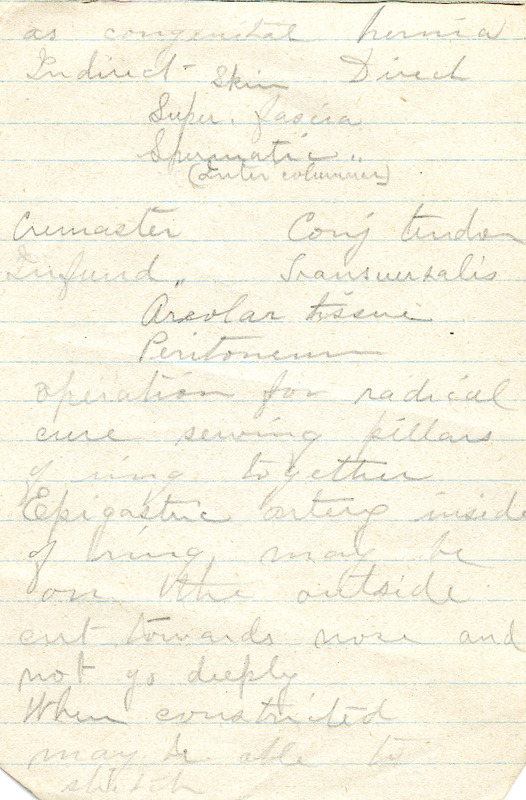 as congenital hernia
Indirect Skin Direct
Super. fascia
Spermatic "
(Inter columnar)
Cremaster Conj tendon
Infund " Transversalis
Areolar tissue
Peritoneum
operation for radical
cure sewing pillars
of ring together
Epigastric artery inside
of ring may be
on the outside
cut towards nose and
not go deeply
When constricted
may be able to
stretch